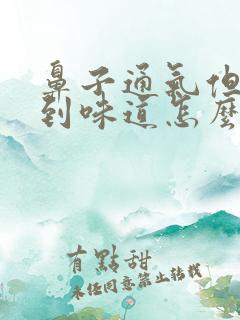 鼻子通氣但
到味道怎麼
有點甜
未經同意禁止轉載